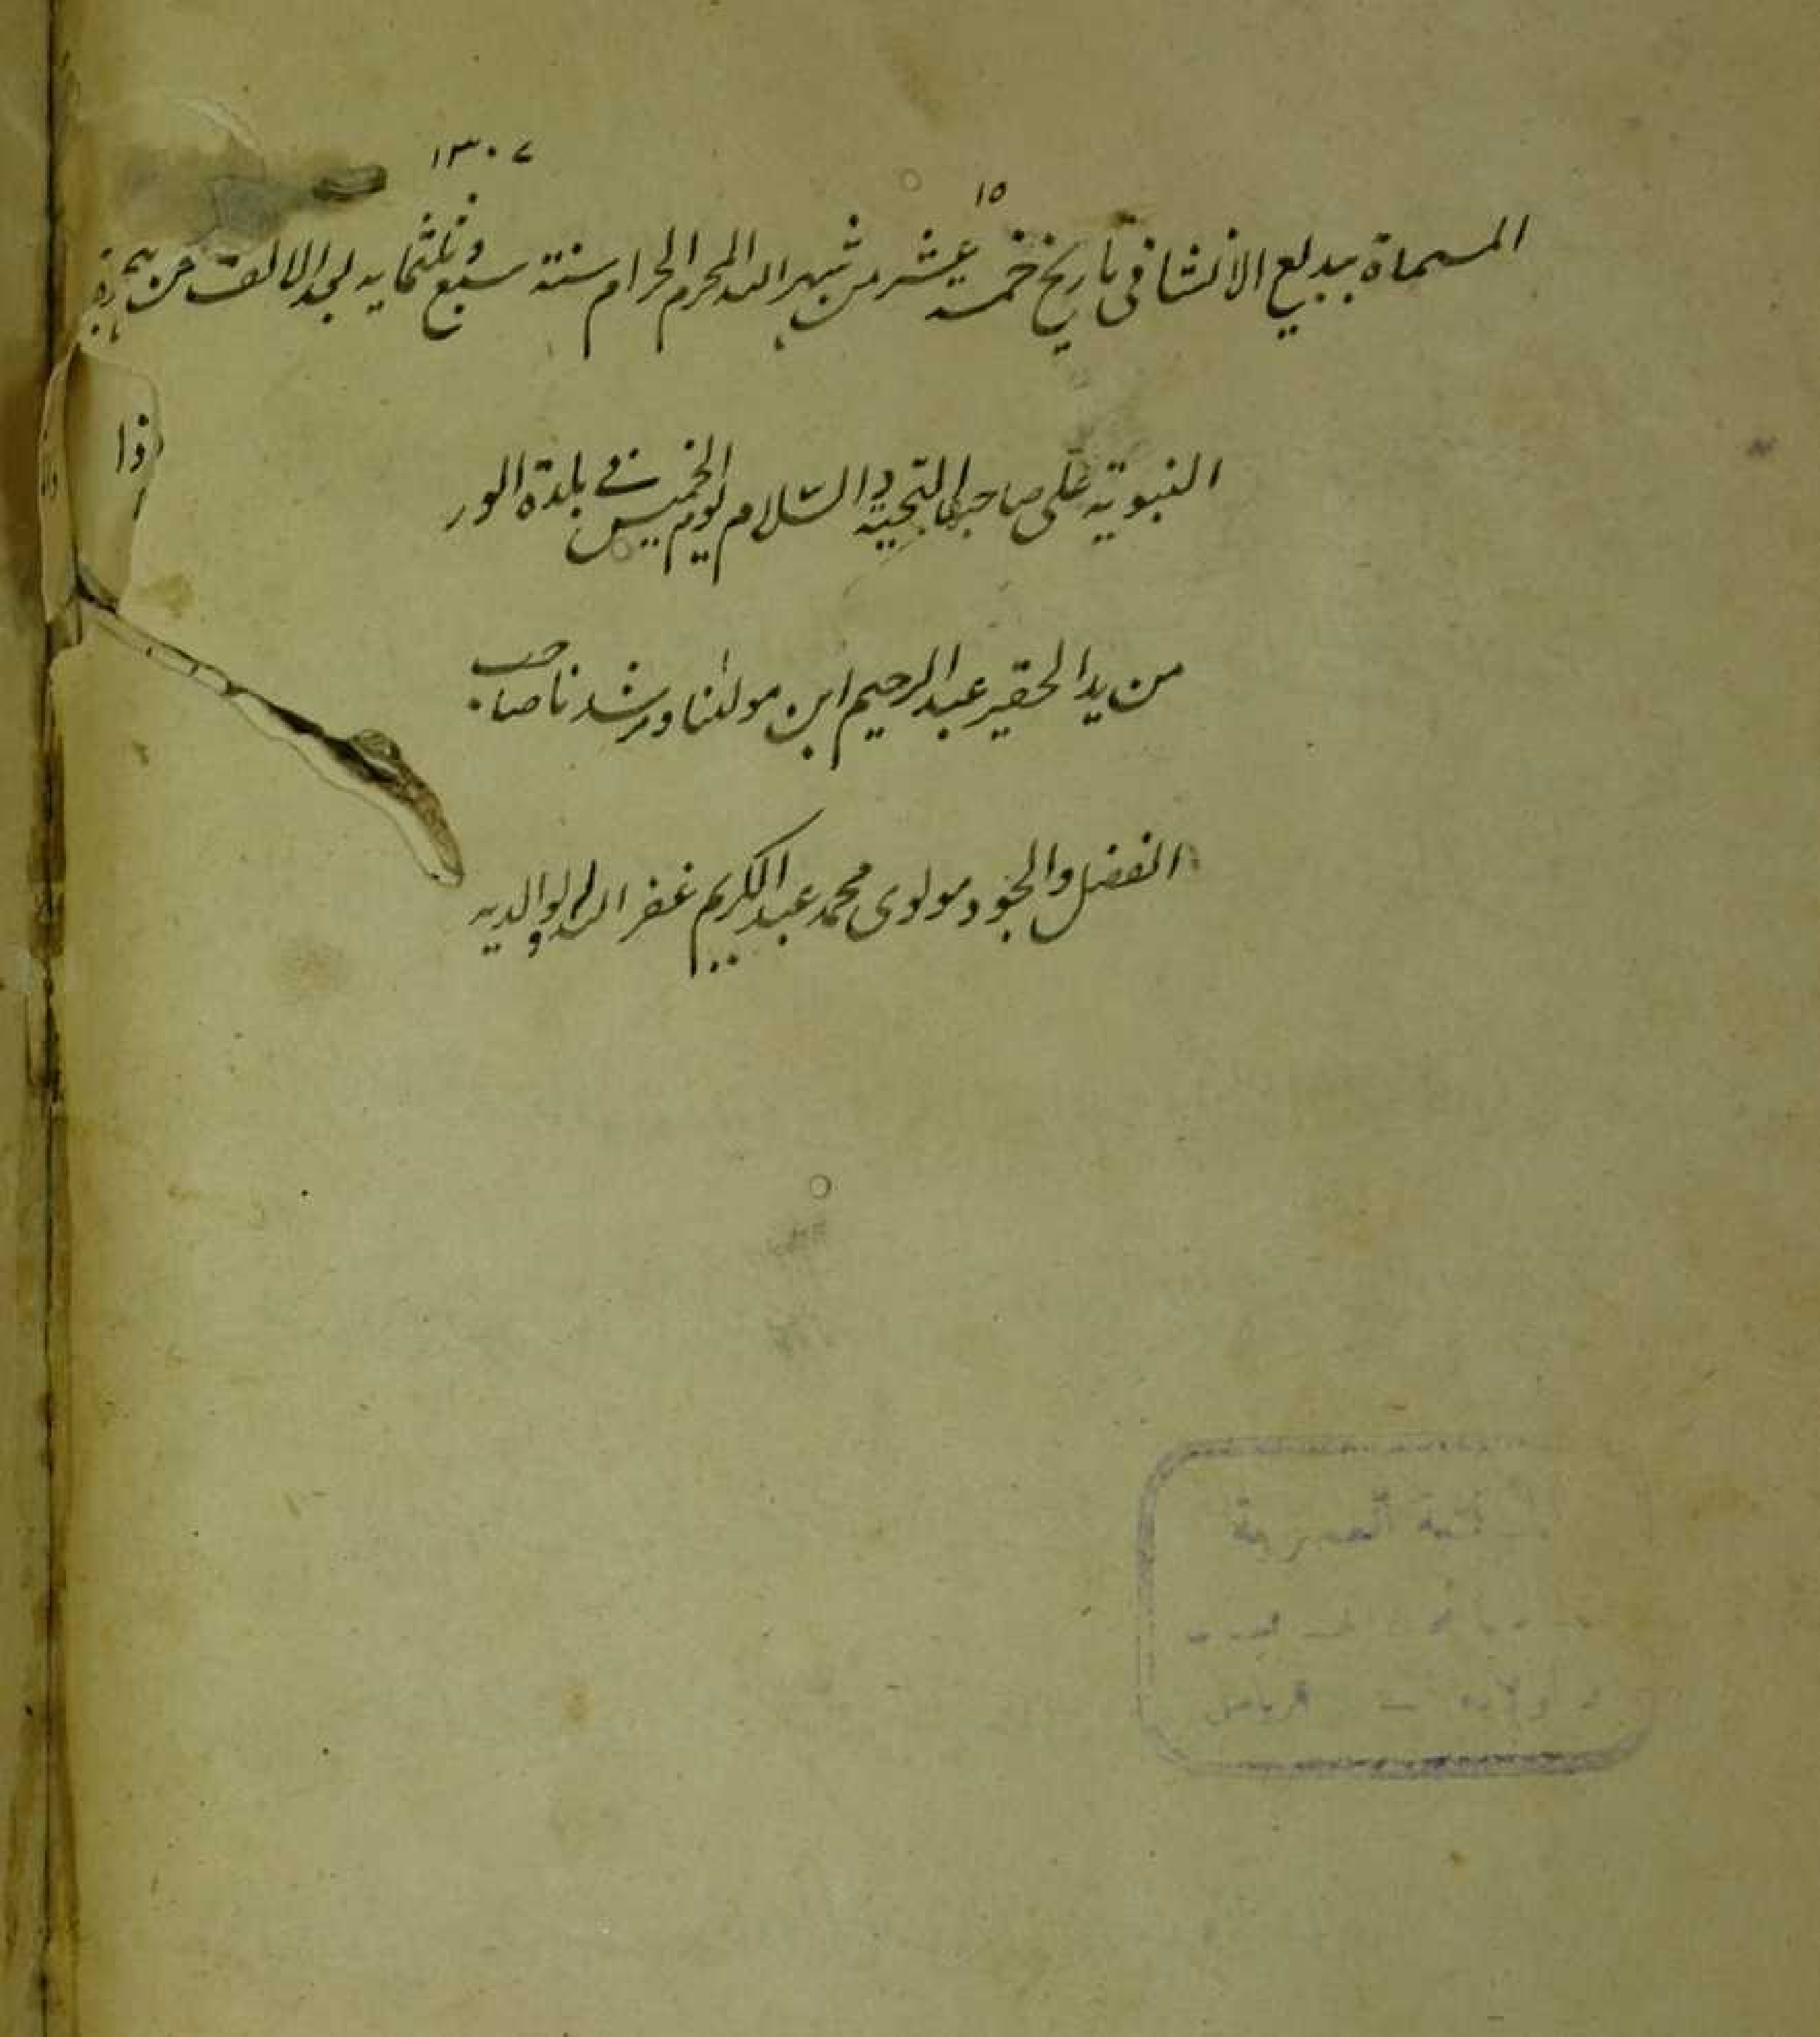 ١٣٠٧
١٥
المسماة ببديع الانشا فى تاريخ خمسه عشر من شهر الله المحرم الحرام سنته سبع وثلثمايه بعد الالف من هجرة
النبوية على صاحبها التحية والسلام يوم الخميس فى بلدة الور
ذا
من يد الحقير عبد الرحيم ابن مولنا ومرشدنا صاحب
الفضل والجود مولوى محمد عبد الكريم غفر الله له ولوالديه